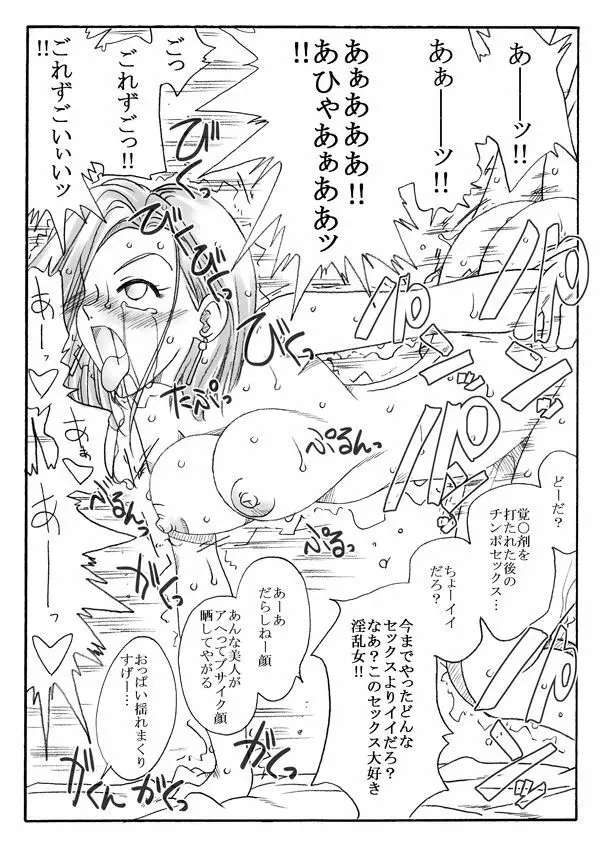 あぁーーッ!!
あぁーーッ!!
あぁあああ!!
あひゃあぁああッ
!!
ごっ
ごれずごっ!!
ごれずごいぃいッ
!!
びくっ
びくびくっ
びくっ
たぷっ
ぷるんっ
ぶるんっ
ぷるんっ
パン
パン
パン
パン
パン
あーっ♡
あぁ♡
あーっ♡
どーだ?
覚〇剤を
打たれた後の
チンポセックス…
ちょーイイ
だろ?
今までやったどんな
セックスよりイイだろ?
なあ?このセックス大好き
淫乱女!!
あーあ
だらしねー顔
あんな美人が
アヘってブサイク顔
晒してやがる
おっぱい揺れまくり
すげー…
がくんっ
がくんっ